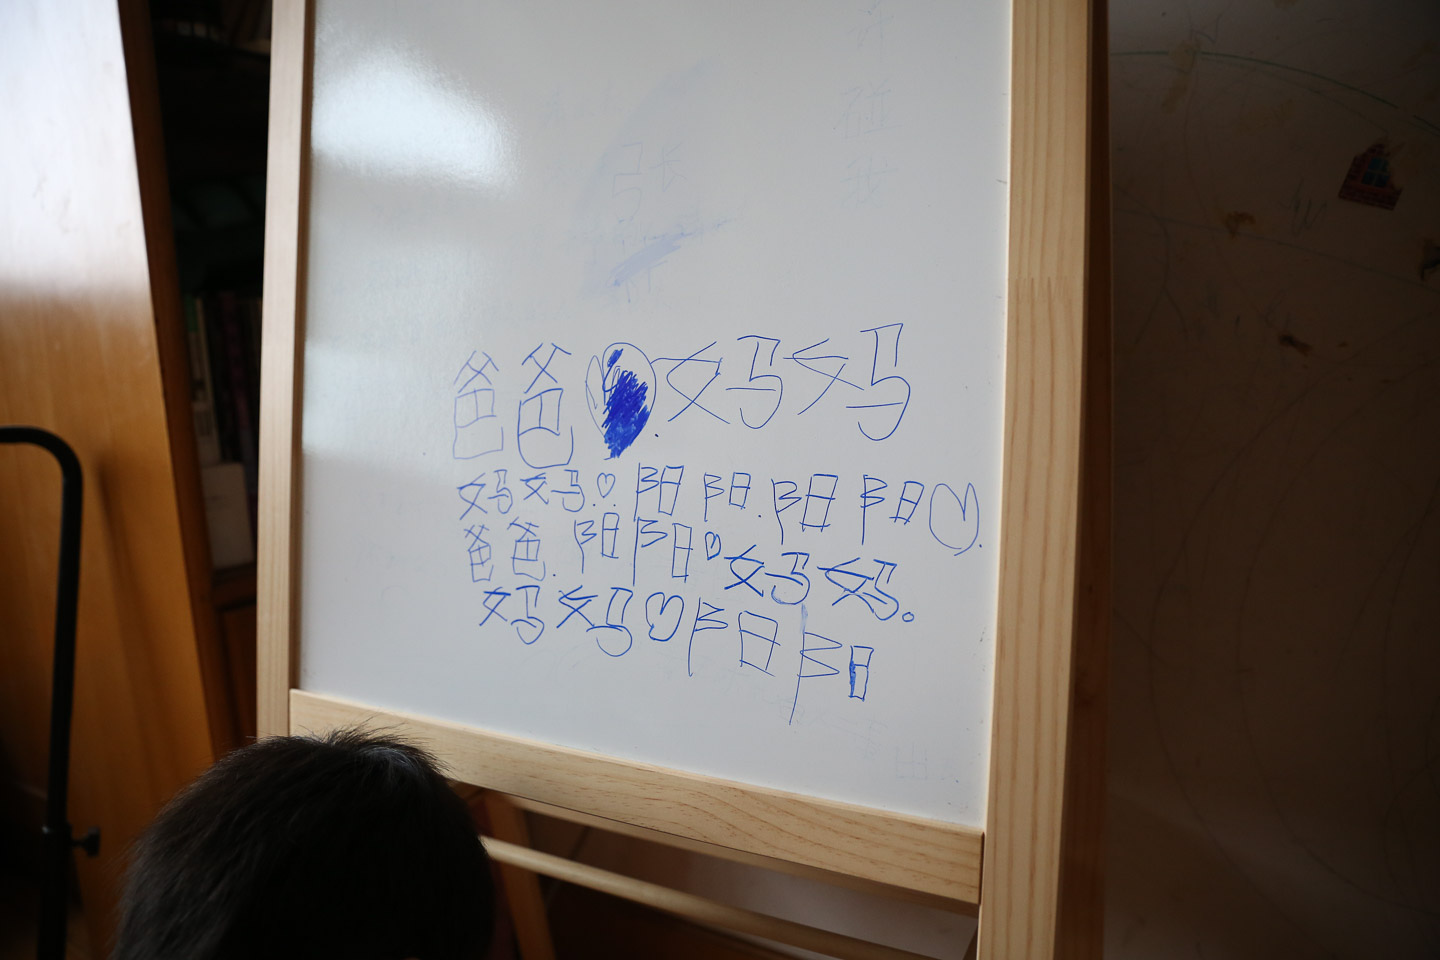 爸爸❤妈妈.
妈妈♡.阳阳.阳阳♡.
爸爸.阳阳♡妈妈。
妈妈♡阳阳